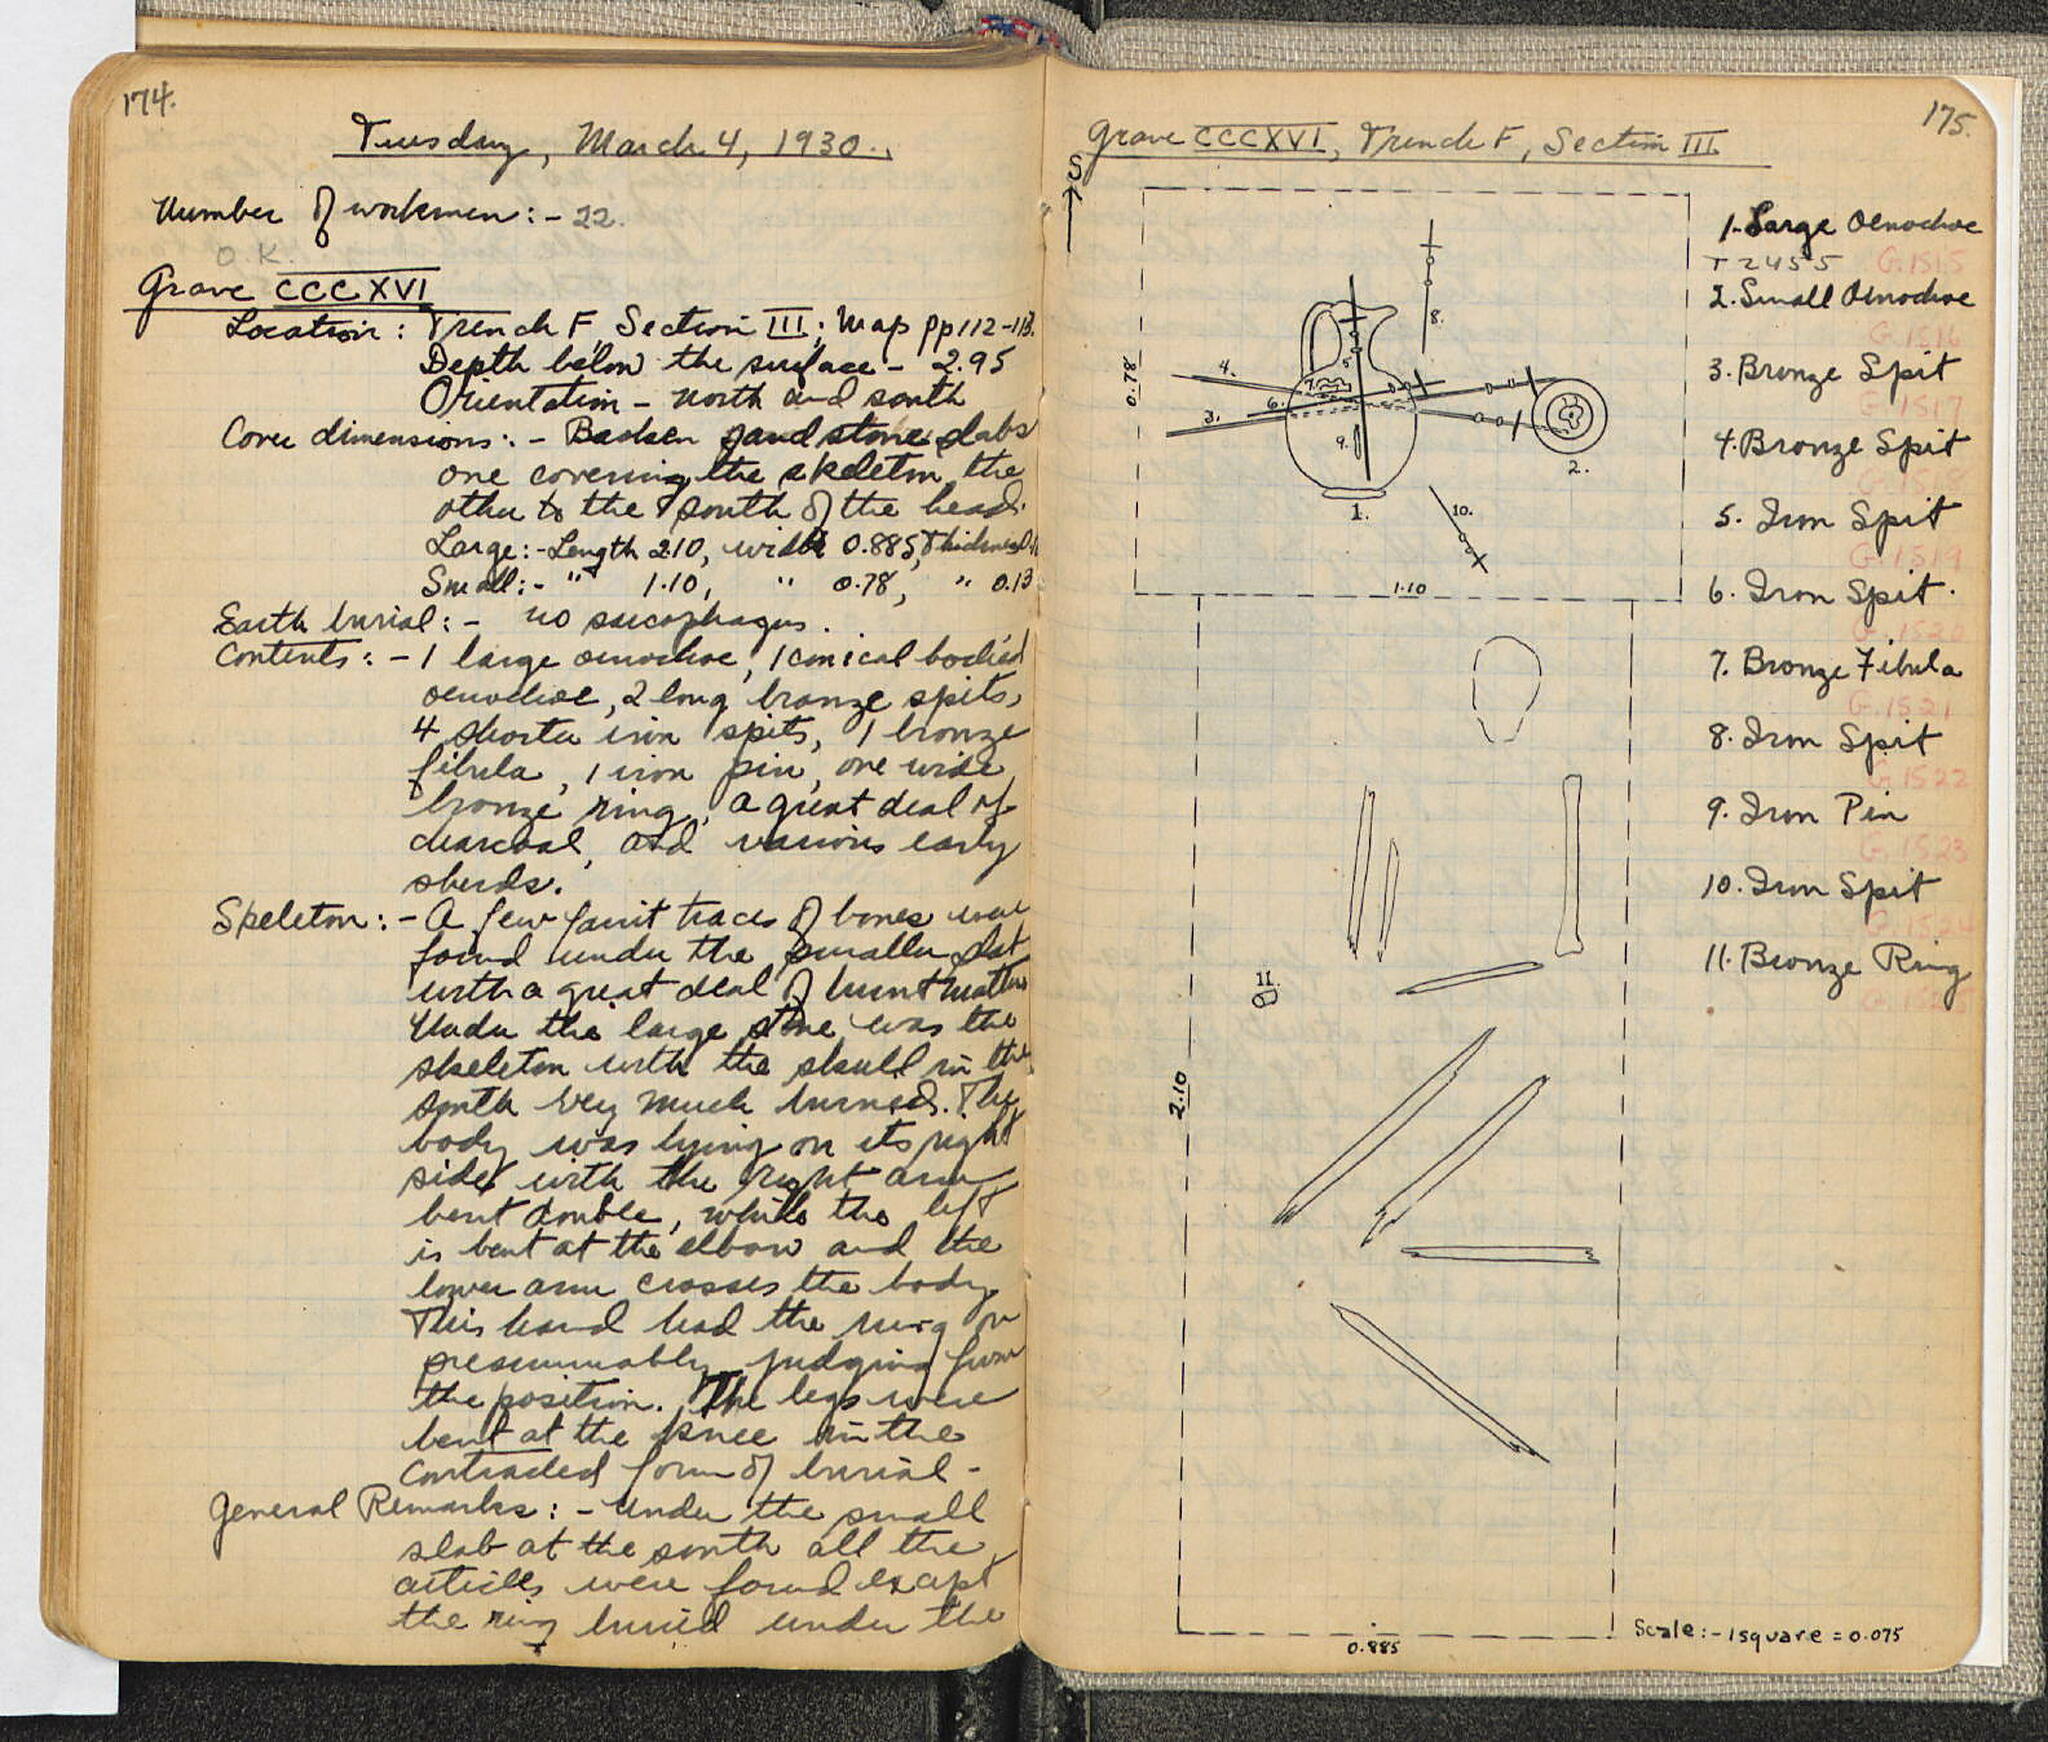 174.
Tuesday, March 4, 1930.
Number of workmen:- 22.
O.K.
Grave CCCXVI
Location: Trench F, Section III; Map pp 112-113.
Depth below the surface - 2.95
Orientation - North and south
Cover dimensions:- sandstone slabs
one covering the skeleton, the
other to the south of the head.
Large:- Length 2.10, width 0.885, Thickness
Small:- " 1.10, " 0.78, " 0.13
Earth burial:- no sarcophagus.
Contents:- 1 large oenochoe, 1 conical bodied
oenochoe, 2 long bronze spits,
4 shorter iron spits, 1 bronze
fibula, 1 iron pin, one wide
bronze ring, a great deal of
charcoal, and various early
sherds.
Skeleton:- A few faint traces of bones were
found under the smaller slab
with a great deal of burnt matter
Under the large stone was the
skeleton with the skull in the
south very much burned. The
body was lying on its right
side with the right arm
bent double, while the left
is bent at the elbow and the
lower arm crosses the body.
This hand had the ring on
presumably, judging from
the position. The legs were
bent at the knee in the
contracted form of burial -
General Remarks:- Under the small
slab at the south all the
articles were found except
the ring buried under the
175.
Grave CCCXVI, Trench F, Section III
S
8.
4.
5.
7.
6.
3.
9.
2.
1.
10.
0.78
1.10
11.
2.10
0.885
Scale:- 1 square = 0.075
1. Large Oenochoe
T 2455 G.1515
2. Small Oenochoe
G.1516
3. Bronze Spit
G.1517
4. Bronze Spit
G.1518
5. Iron Spit
G.1519
6. Iron Spit.
G.1520
7. Bronze Fibula
G.1521
8. Iron Spit
G.1522
9. Iron Pin
G.1523
10. Iron Spit
G.1524
11. Bronze Ring